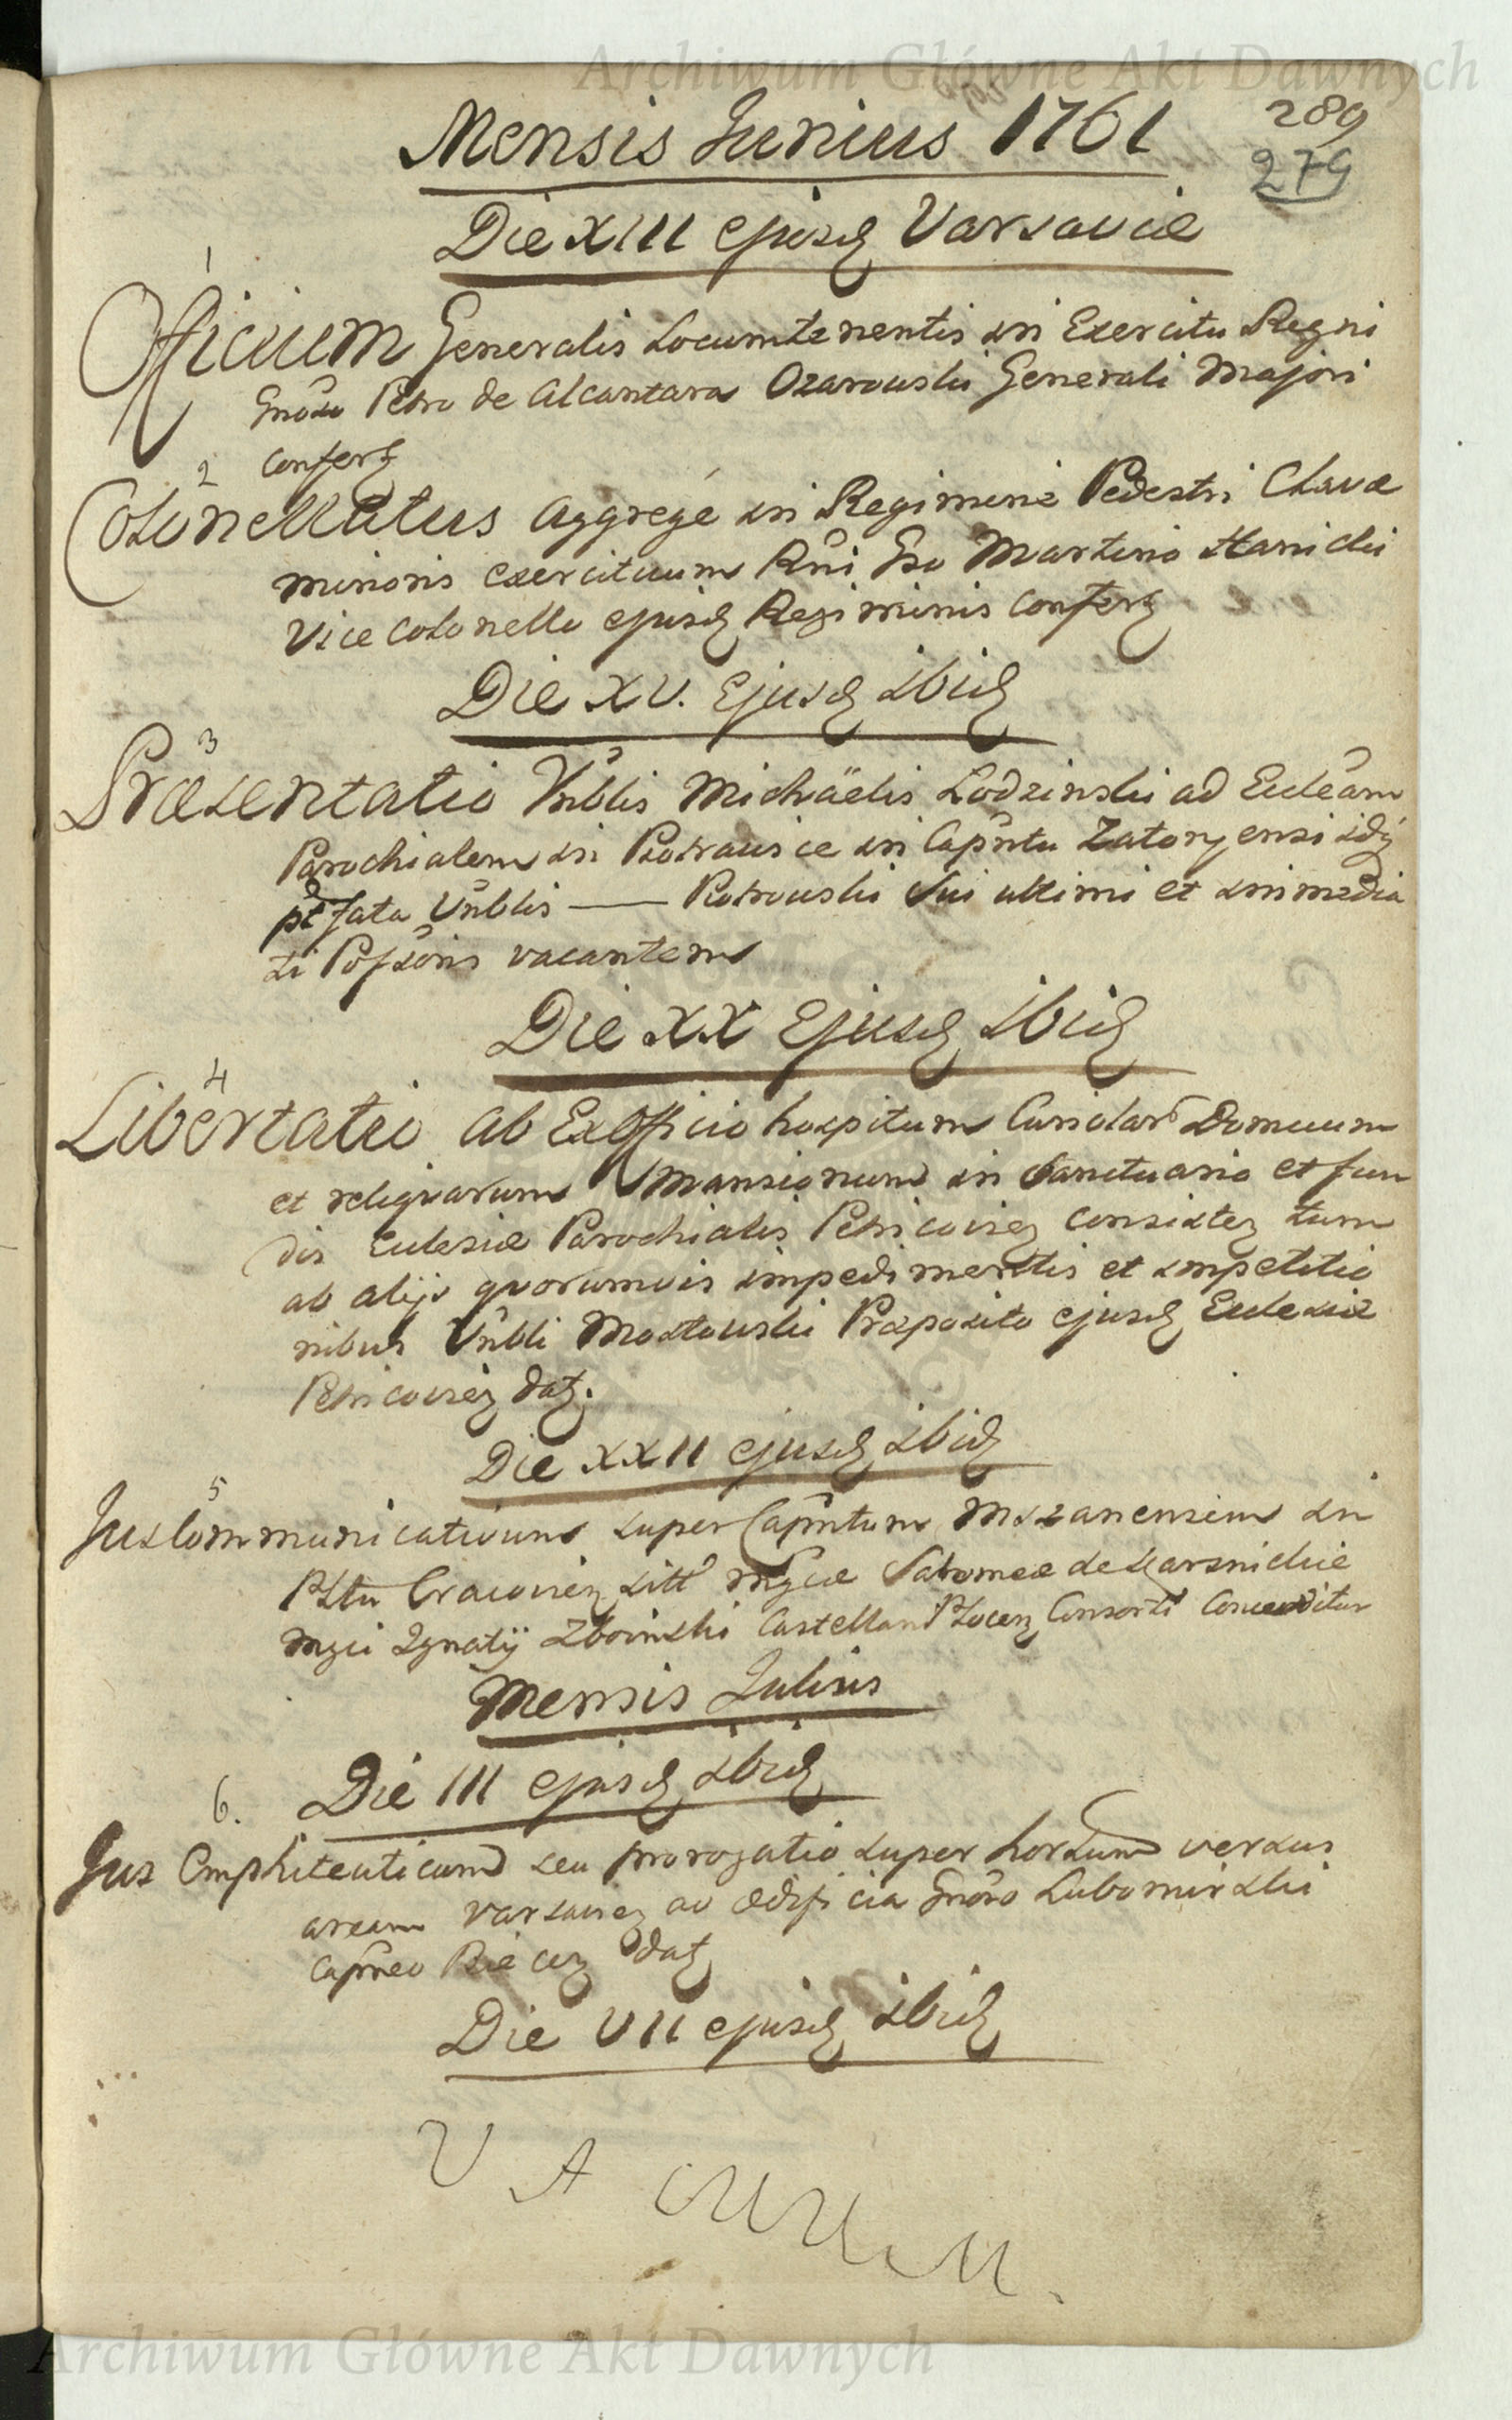 Archiwum Główne Akt Dawnych
Mensis Junius 1761
289
279
Die XIII ejusd Varsaviæ
1
Officium Generalis Locumtenentis in Exercitu Regni
Gnoso Petro de Alcantara Ozarowski Generali Majori
Confert
2
Colonellatus aggregé in Regimine Pedestri Clavæ
minoris exercituum Rni Gso Martino Stanicki
Vice Colonello ejusd Regiminis Confert
Die XV. Ejusd ibid
3
Præsentatio Vnblis Michäelis Lodzinski ad Eccleam
Parochialem in Piotrowice in Capntu Zatoryensi
pt fata Vnblis — Piotrowski Sui ultimi et immedia
ti Possoris vacantem
Die XX Ejusd ibid
4
Libertatio ab Exofficio hospitum Curiolar Domuum
et reliquarum Mansionum in Sanctuario et fun
dis Ecclesiæ Parochialis Petricovien consisten tum
ab alijs quorumvis impedimentis et impetitio
nibus Vnbli Mostowski Præposito ejusd Ecclesiæ
Petricovien dat.
Die XXII ejusd ibid
5
Jus Communicativum super Capntum Mszanensem in
Pltu Cracovien sitt Mgcæ Salomeæ de Karsnickie
Mgci Ignatij Zboinski Castellani Plocen Consorti Conceditur
Mensis Julius
Die III ejusd ibid
6.
Jus Emphiteuticum seu prorogatio super hortum versus
arcem Varsavien ac ædificia Gnoso Lubomirski
Capneo Biecen dat
Die VII ejusd ibid
VACUUM.
Archiwum Główne Akt Dawnych